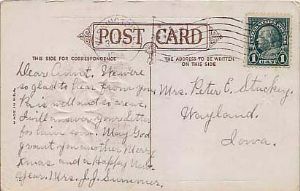 POST CARD
THIS SIDE FOR CORRESPONDENCE
THE ADDRESS TO BE WRITTEN
ON THIS SIDE
1 CENT 1
Dear Aunt. We were
so glad to hear from you
this well and so are we.
I will answer your letter
for him soon. May God
grant you another Merry
Xmas and a Happy New
Year. Mrs. J.J. Summer.
Mrs. Peter E. Stuckey
Wayland.
Iowa.